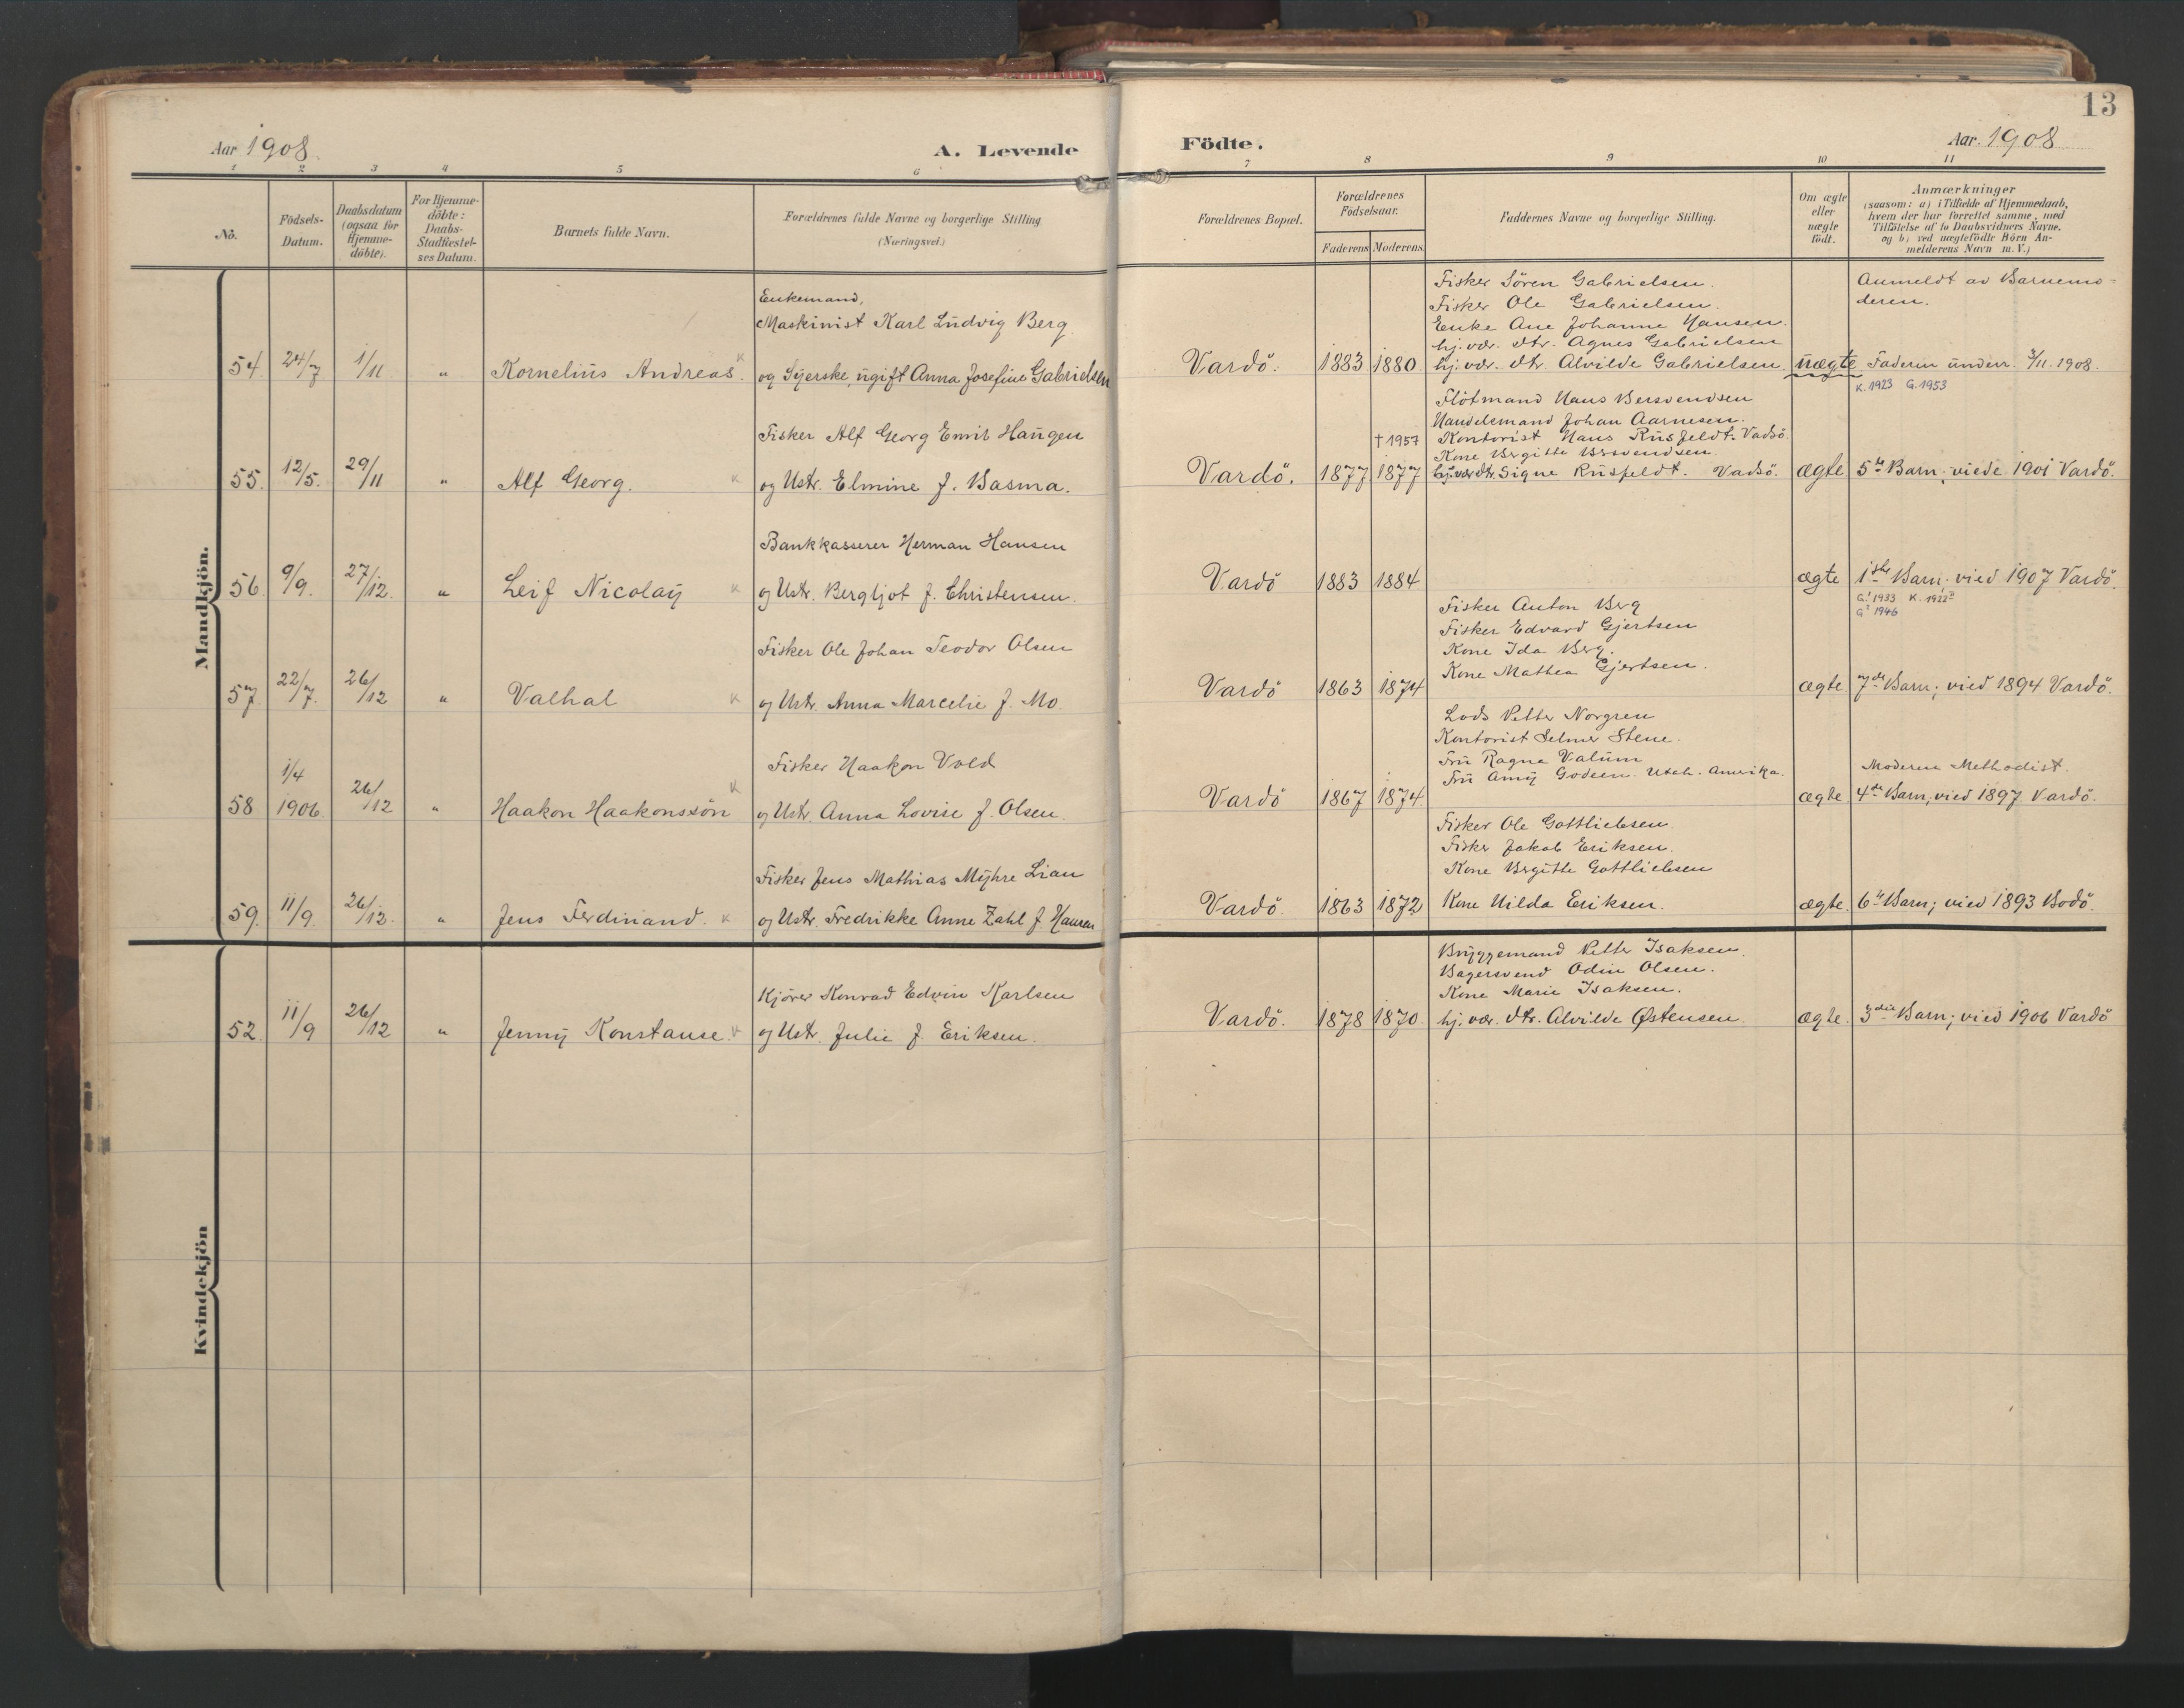 13
Aar 1908.
A. Levende
Födte.
Aar. 1908
1 2 3 4 5 6 7 8 9 10 11
No.
Födsels-
Datum.
Daabsdatum
(ogsaa for
Hjemme-
döbte).
For Hjemme-
döbte:
Daabs-
Stadfæstel-
ses Datum.
Barnets fulde Navn.
Forældrenes fulde Navne og borgerlige Stilling
(Næringsvei.)
Forældrenes Bopæl.
Forældrenes
Födselsaar.
Faderens Moderens.
Faddernes Navne og borgerlige Stilling.
Om ægte
eller
uægte
födt.
Anmærkninger
(saasom: a) i Tilfælde af Hjemmedaab,
hvem der har forrettet samme, med
Tilföielse af to Daabsvidners Navne.
og b) ved uægtefödte Börn An-
melderens Navn m. V.)
Mandkjön.
Enkemand,
Maskinist Karl Ludvig Berg
54. 24/7 1/11 " Kornelius Andreas. K og Syerske, ugift Anna Josefine Gabrielsen
Vardö. 1883 1880.
Fisker Sören Gabrielsen.
Fisker Ole Gabrielsen.
Enke Ane Johanne Hansen.
hj. vær. dtr. Agnes Gabrielsen
hj. vær. dtr. Alvilde Gabrielsen.
uægte
Anmeldt av Barnemo-
deren.
Faderen underr. 3/11. 1908.
K. 1923 G. 1953
Fisker Alf Georg Emil Haugen
55. 12/5. 29/11 " Alf Georg. K og Ustr. Elmine f. Basma.
† 1957
Vardö. 1877 1877
Flötmand Hans Bersvendsen
Handelsmand Johan Aarnesen.
Kontorist Hans Rusfeldt. Vadsö.
Kone Bergitte Bersvendsen.
hj. vær. dtr. Signe Rusfeldt. Vadsö.
ægte 5te Barn; viede 1901 Vardö.
Bankkasserer Herman Hansen
56. 9/9. 27/12. " Leif Nicolay K og Ustr. Bergljot f. Christensen.
Vardö 1883 1884
ægte 1ste Barn; vied 1907 Vardö.
G.1 1933 K. 1922
G2 1946
Fisker Ole Johan Teodor Olsen
57. 22/7. 26/12 " Valhal K og Ustr. Anna Marcelie f. Mo.
Vardö 1863 1874
Fisker Anton Berg
Fisker Edvard Gjertsen
Kone Ida Berg.
Kone Mathea Gjertsen.
ægte. 7de Barn; vied 1894 Vardö.
Fisker Haakon Vold
58 1/4 1906. 26/12 " Haakon Haakonssön K og Ustr. Anna Lovise f. Olsen.
Vardö 1867 1874.
Lods Petter Norgren
Kontorist Selmer Stene.
Fru Ragna Valum
Fru Amy Godeen. Utah. Amerika.
Moderen Methodist.
ægte. 4de Barn, vied 1897 Vardö.
Fisker Jens Mathias Myhre Lian
59. 11/9. 26/12. " Jens Ferdinand. K og Ustr. Fredrikke Anne Zahl f. Hansen
Vardö. 1863 1872
Fisker Ole Gottliebsen.
Fisker Jakob Eriksen.
Kone Bergitte Gottliebsen
Kone Hilda Eriksen.
ægte. 6te Barn; vied 1893 Bodö.
Kvindekjön
Kjörer Konrad Edvin Karlsen
52. 11/9 26/12 " Jenny Konstanse. K og Ustr. Julie f. Eriksen.
Vardö. 1878 1870.
Bryggemand Petter Isaksen.
Bagersvend Odin Olsen.
Kone Marie Isaksen.
hj. vær. dtr. Alvilde Østensen.
ægte. 3die Barn; vied 1906 Vardö